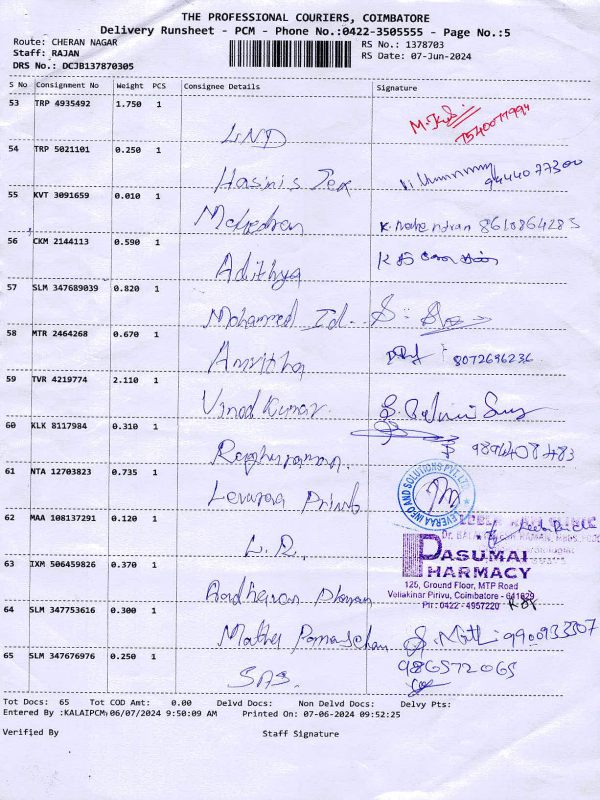 THE PROFESSIONAL COURIERS, COIMBATORE
Delivery Runsheet - PCM - Phone No.:0422-3505555 - Page No.:5
Route: CHERAN NAGAR RS No.: 1378703
Staff: RAJAN RS Date: 07-Jun-2024
DRS No.: DCJB137870305
S No Consignment No Weight PCS Consignee Details Signature
53 TRP 4935492 1.750 1
LND
54 TRP 5021101 0.250 1
Hasinis Tex 9444077300
55 KVT 3091659 0.010 1
Mahendran K. Mahendran 8610864285
56 CKM 2144113 0.590 1
Adithya
57 SLM 347689039 0.820 1
Mohammed Id.
58 MTR 2464268 0.670 1
Amritha 8072696236
59 TVR 4219774 2.110 1
Vinod Kumar
60 KLK 8117984 0.310 1
Raghuraman. 9894408483
61 NTA 12703823 0.735 1
LEVERAA INFO AND SOLUTIONS PVT. LTD
62 MAA 108137291 0.120 1
L.R.
63 IXM 506459826 0.370 1
PASUMAI
PHARMACY
125, Ground Floor, MTP Road
Vellakinar Pirivu, Coimbatore - 641029
PH : 0422 - 4957220
64 SLM 347753616 0.300 1
9900933307
65 SLM 347676976 0.250 1
SAS. 986572065
Tot Docs: 65 Tot COD Amt: 0.00 Delvd Docs: Non Delvd Docs: Delvy Pts:
Entered By :KALAIPCM 06/07/2024 9:50:09 AM Printed On: 07-06-2024 09:52:25
Verified By Staff Signature